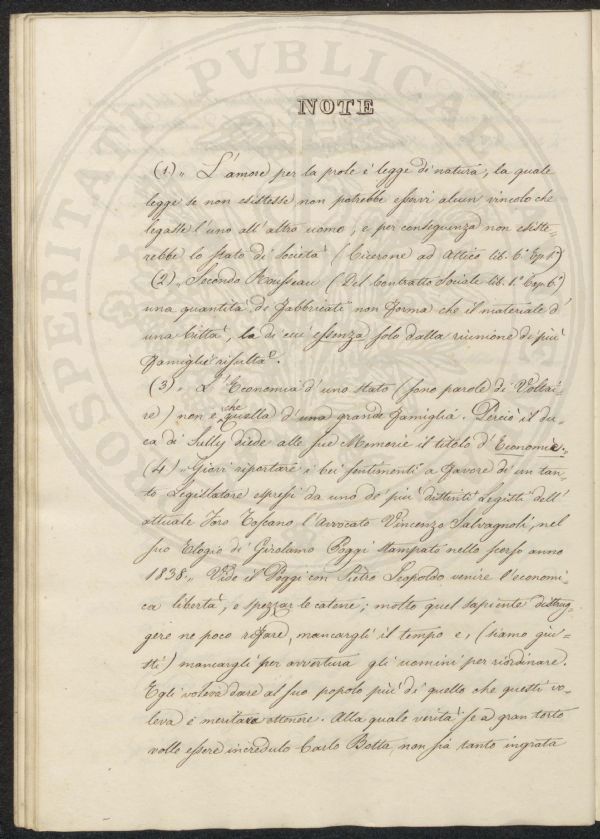 NOTE
(1) „ L'amore per la prole è legge di natura, la quale
legge se non esistesse non potrebbe esservi alcun vincolo che
legasse l'uno all'altro uomo, e per conseguenza non esiste=
rebbe lo stato di Società (Cicerone ad Attico lib. 6.° Ep. 1.ª)
(2) „ Secondo Rousseau (Del Contratto Sociale lib. 1.° Cap. 6.°)
una quantità di Fabbricati non Forma che il materiale d'
una Città, la di cui essenza solo dalla riunione di più
Famiglie risulta".
(3) „ L'Economia d'uno stato (sono parole di Voltai=
re) non è che quella d'una grande Famiglia. Perciò il du=
ca di Sully diede alle sue Memorie il titolo d'Economie."
(4) „ Giovi riportare i bei sentimenti a Favore di un tan=
to Legislatore espressi da uno de' più distinti Legisti dell'
attuale Foro Toscano l'Avvocato Vincenzo Salvagnoli, nel
suo Elogio di Girolamo Poggi stampato nello scorso anno
1838 „ Vide il Poggi con Pietro Leopoldo venire l'economi=
ca libertà, e spezzar le catene; molto quel sapiente distrug=
gere ne poco rifare, mancargli il tempo e, (siamo giu=
sti) mancargli per avventura gli uomini per riordinare.
Egli voleva dare al suo popolo più di quello che questi vo=
leva e meritava ottenere. Alla quale verità se a gran torto
volle essere incredulo Carlo Botta, non fia tanto ingrata
PROSPERITATI PVBLICAE